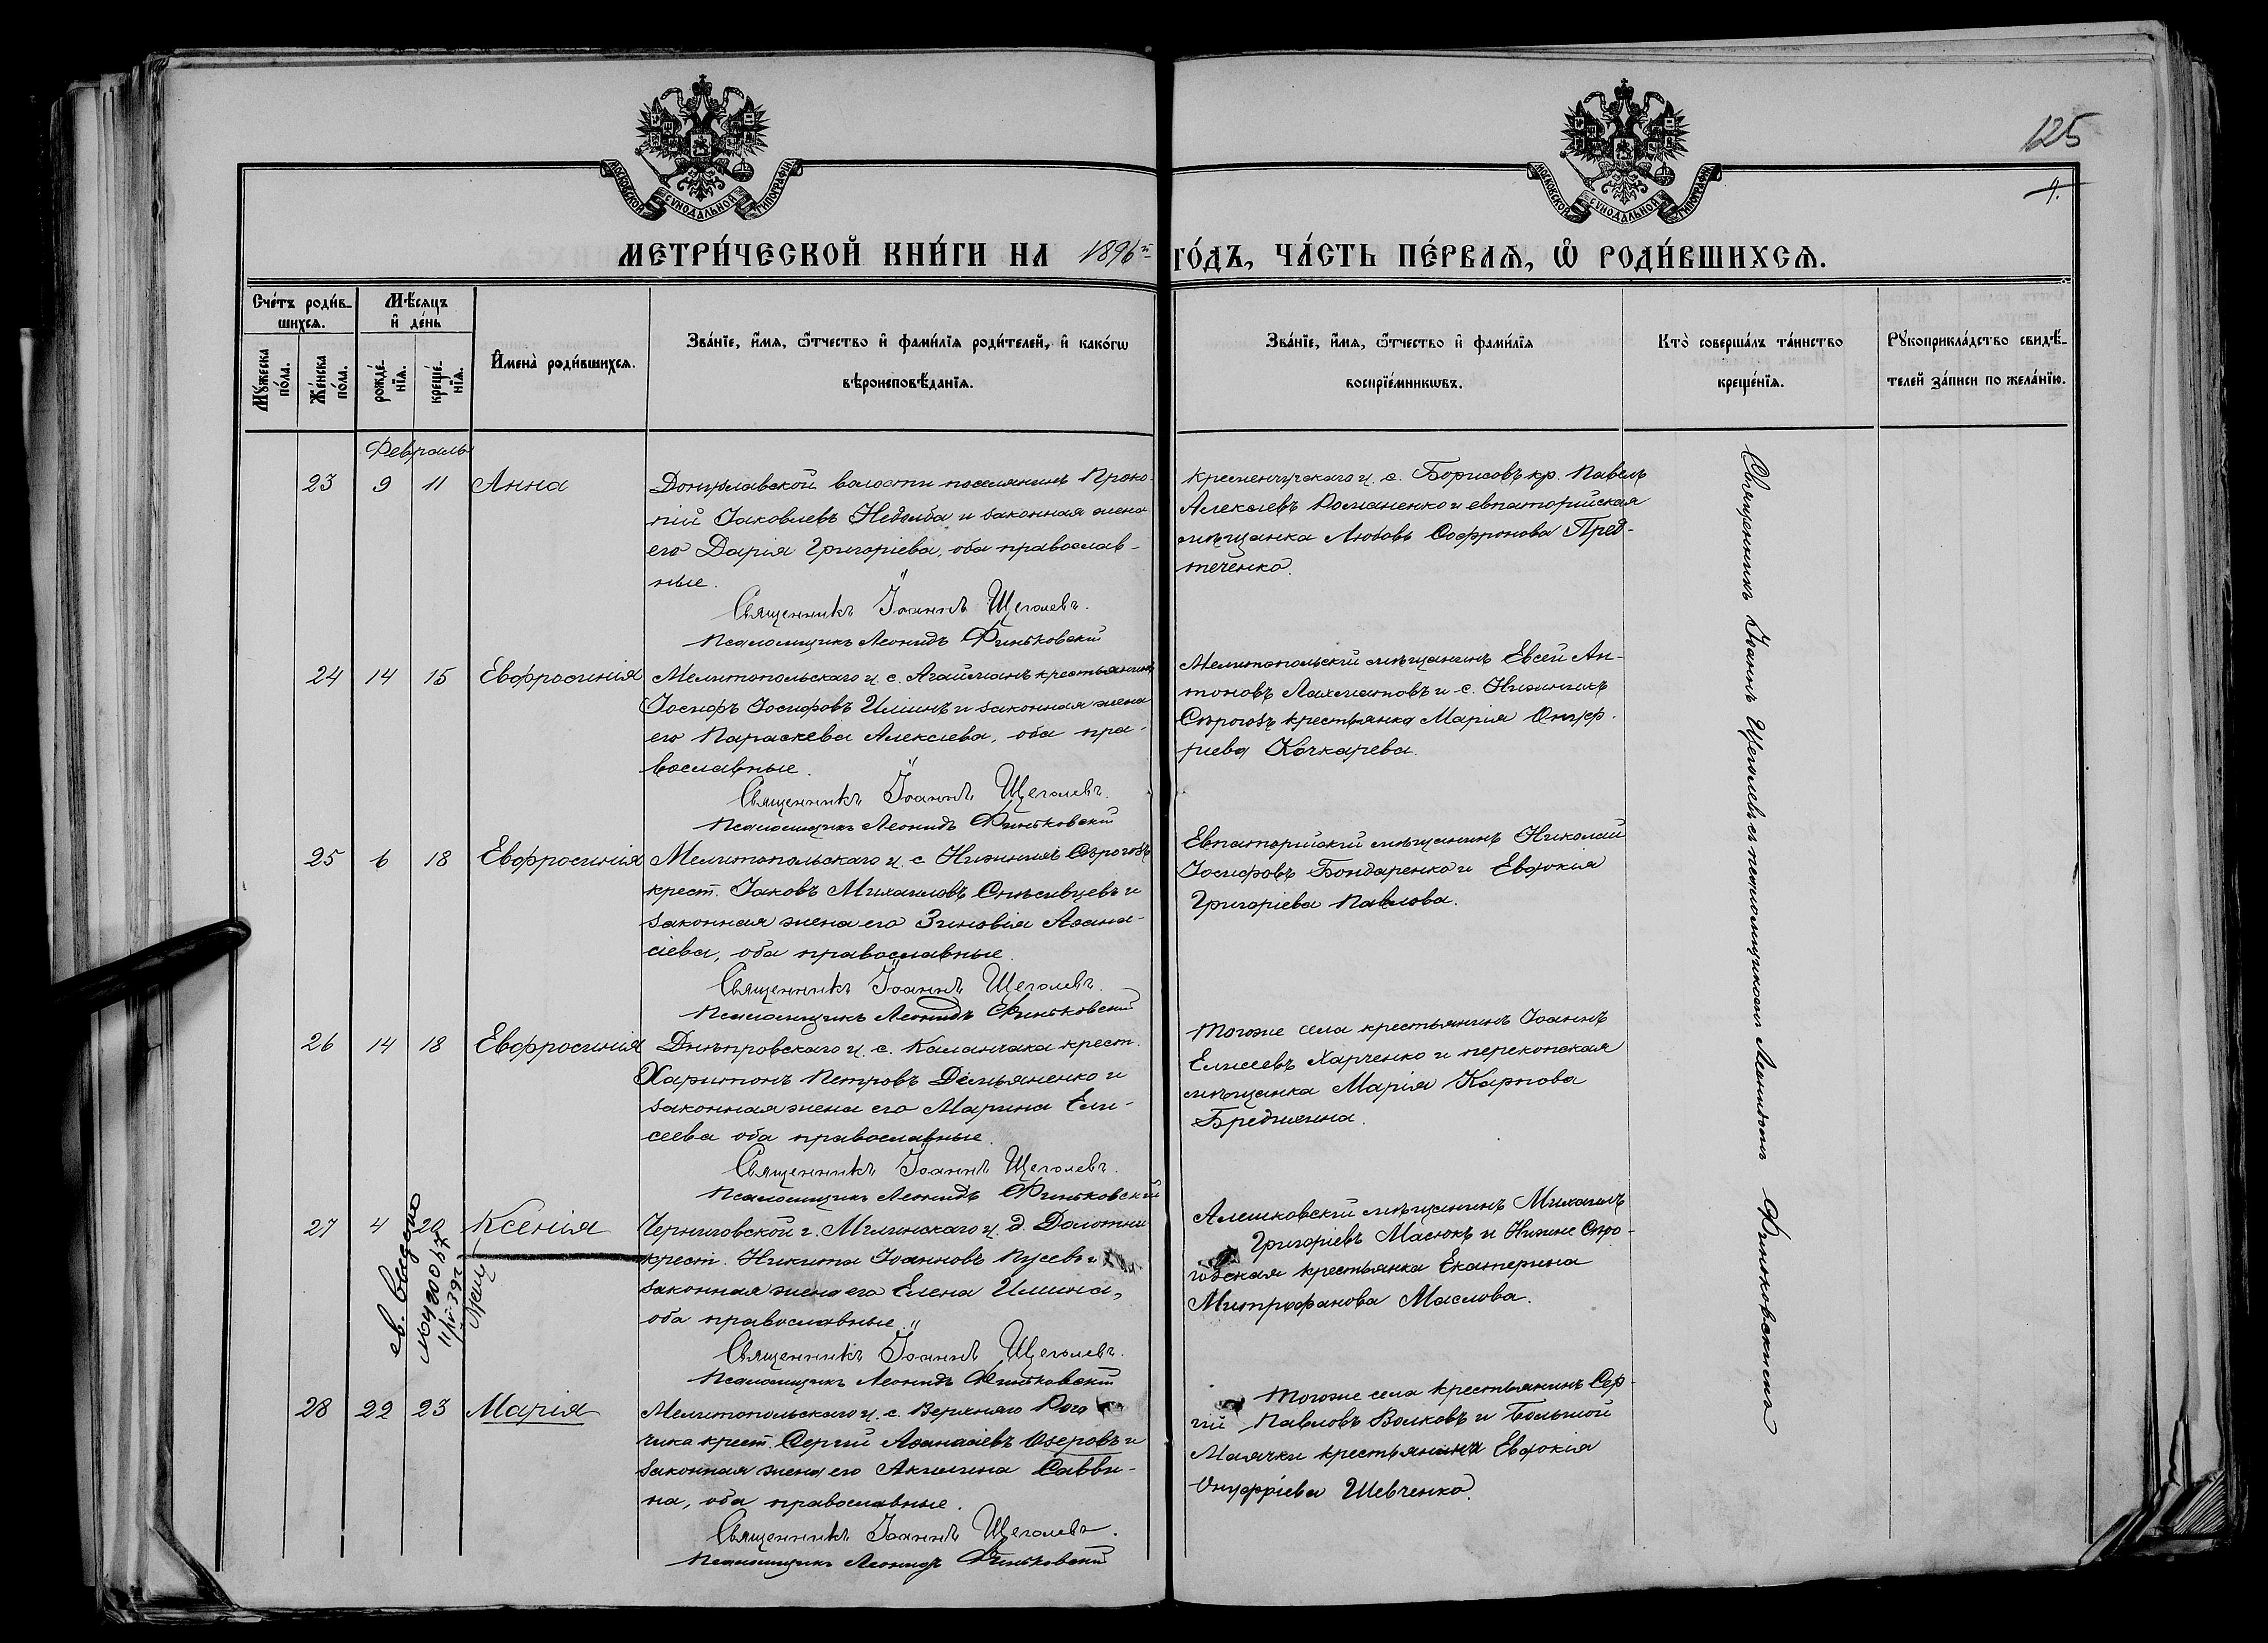 125
4.
МОСКОВСКОЙ СѴНОДАЛЬНОЙ ТИПОГРАФІИ
МОСКОВСКОЙ СѴНОДАЛЬНОЙ ТИПОГРАФІИ
МЕТРИ́ЧЕСКОЙ КНИ́ГИ НА 1896й ГО́ДЪ, ЧА́СТЬ ПЕ́РВАѦ, Ѡ҆ РОДИ́ВШИХСѦ.
Сче́тъ роди́в-
шихсѧ.
Мѣ́сѧцъ
и҆ де́нь
Мꙋ́жеска по́ла.
Же́нска по́ла.
рожде́-
нїѧ.
креще́-
нїѧ.
И҆мена̀ роди́вшихсѧ.
Зва́нїе, и҆́мѧ, ѻ҆́тчество и҆ фами́лїѧ роди́телей, и҆ како́гѡ
вѣроисповѣ́данїѧ.
Зва́нїе, и҆́мѧ, ѻ҆́тчество и҆ фами́лїѧ
воспрїе́мникѡвъ.
Кто̀ соверша́лъ та́инство
креще́нїѧ.
Рꙋкоприкла́дство свидѣ́-
телей за́писи по жела́нїю.
Февраль
23 9 11 Анна
Донузлавской волости поселянинъ Проко-
пій Іаковлевъ Недолба и законная жена
его Дарія Григоріева, оба православ-
ные.
Священникъ Іоаннъ Щеголевъ.
Псаломщикъ Леонидъ Финьковскій
Кременчугскаго у. с. Борисовъ кр. Павелъ
Алексѣевъ Романенко и евпаторійская
мѣщанка Любовь Софронова Пред-
теченко.
24 14 15 Евфросинія
Мелитопольскаго у. с. Агайманъ крестьянинъ
Іосифъ Іосифовъ Илинъ и законная жена
его Параскева Алексѣева, оба пра-
вославные.
Священникъ Іоаннъ Щеголевъ.
Псаломщикъ Леонидъ Финьковскій
Мелитопольскій мѣщанинъ Евсей Ан-
тоновъ Лахматовъ и с. Нижнихъ
Сѣрогозъ крестьянка Марія Онуф-
ріева Кочкарева.
25 6 18 Евфросинія
Мелитопольскаго у. с. Нижнихъ Сѣрогозъ
крест. Іаковъ Михаиловъ Спѣсивцевъ и
законная жена его Зиновія Аѳана-
сіева, оба православные.
Священникъ Іоаннъ Щеголевъ.
Псаломщикъ Леонидъ Финьковскій
Евпаторійскій мѣщанинъ Николай
Іосифовъ Бондаренко и Евдокія
Григоріева Павлова.
26 14 18 Евфросинія
Днѣпровскаго у. с. Каланчака крест.
Харитонъ Петровъ Демьяненко и
законная жена его Марина Ели-
сеева оба православные.
Священникъ Іоаннъ Щеголевъ.
Псаломщикъ Леонидъ Финьковскій
Тогоже села крестьянинъ Іоаннъ
Елисеевъ Харченко и перекопская
мѣщанка Марія Карпова
Бреднина.
27 4 20 Ксенія
Черниговской г. Мглинскаго у. д.
крест. Никита Іоанновъ Пусевъ и
законная жена его Елена Илина,
оба православные.
Священникъ Іоаннъ Щеголевъ.
Псаломщикъ Леонидъ Финьковскій
Алешковскій мѣщанинъ Михаилъ
Григоріевъ Масюкъ и Нижне Сѣро-
гозская крестьянка Екатерина
Митрофанова Маслова.
28 22 23 Марія
Мелитопольскаго у. с. Верхняго Рога
чика крест. Сергій Аѳанасіевъ Озеровъ и
законная жена его Акилина Савви-
на, оба православные.
Священникъ Іоаннъ Щеголевъ.
Псаломщикъ Леонидъ Финьковскій
Тогоже села крестьянинъ Сер-
гій Павловъ Волковъ и Большой
Маячки крестьянина Евдокія
Онуфріева Шевченко.
Священникъ Іоаннъ Щеголевъ съ псаломщикомъ Леонидомъ Финьковскимъ